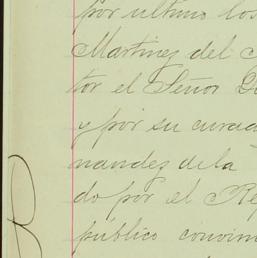 por último los
Martinez del
tor el Señor
y por su curad
nandez de la
do por el Re
público convin